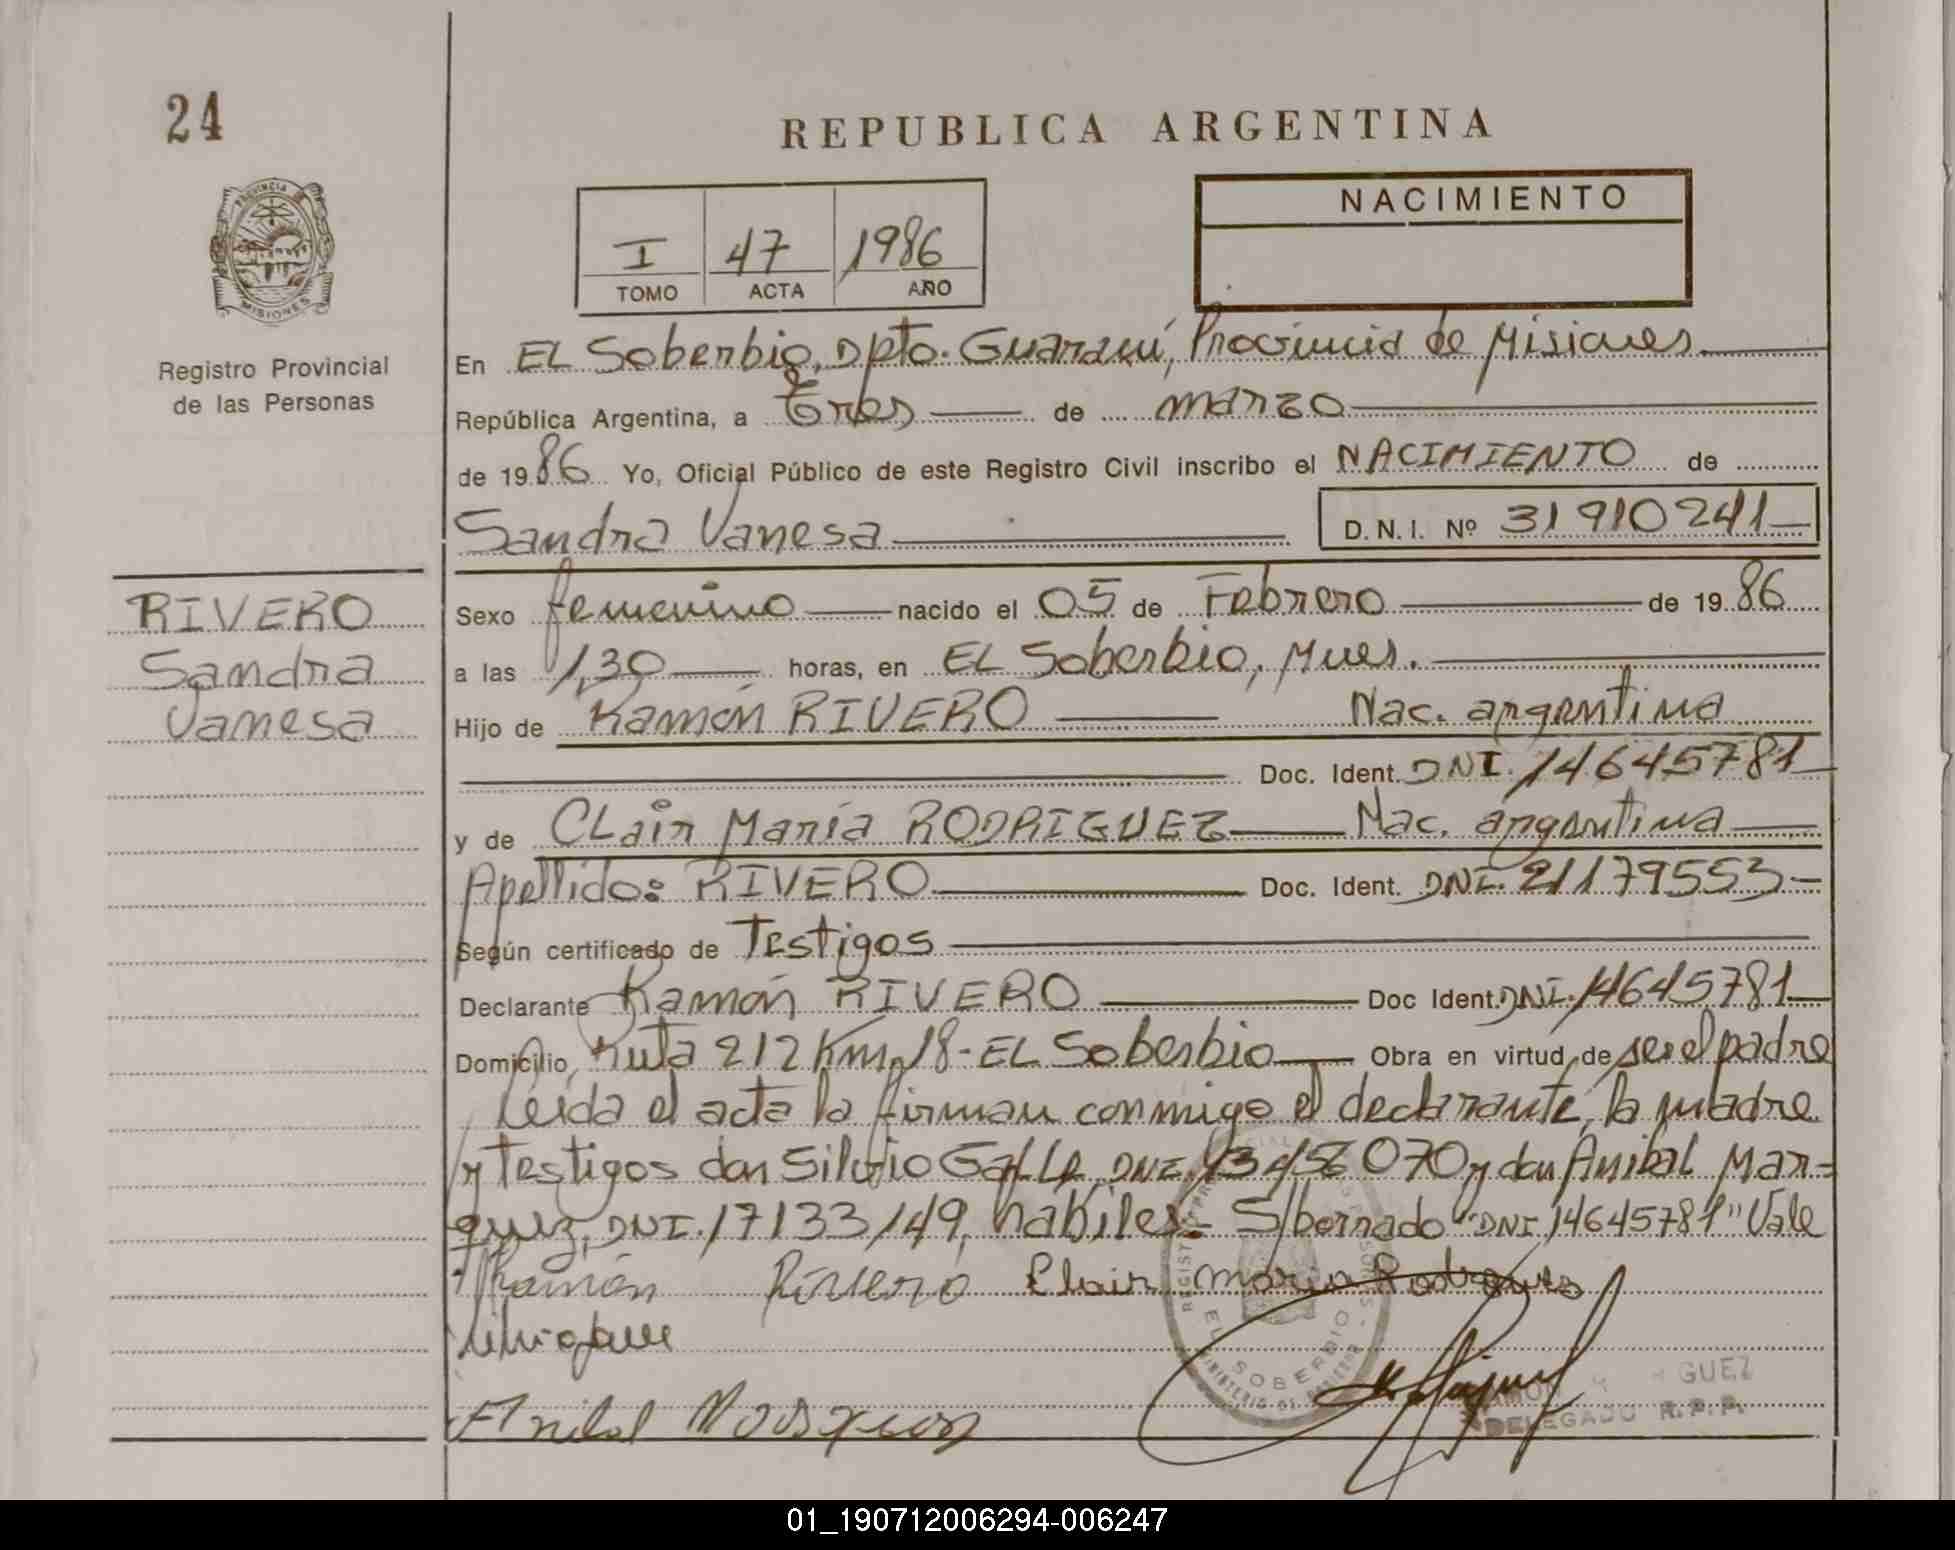 24
REPUBLICA ARGENTINA
PROVINCIA
MISIONES
Registro Provincial
de las Personas
I 47 1986
TOMO ACTA AÑO
NACIMIENTO
En EL Soberbio, Dpto. Guaraní, Provincia de Misiones
República Argentina, a Tres de marzo
de 1986 Yo, Oficial Público de este Registro Civil inscribo el NACIMIENTO de
Sandra Vanesa D.N.I. Nº 31910241
RIVERO
Sandra
Vanesa
Sexo femenino nacido el 05 de Febrero de 1986
a las 1,30 horas, en EL Soberbio, Mnes.
Hijo de Ramón RIVERO Nac. argentina
Doc. Ident. DNI. 14645781
y de CLair María RODRIGUEZ Nac. argentina
Apellido: RIVERO Doc. Ident. DNI. 21179553
Según certificado de Testigos
Declarante Ramón RIVERO Doc Ident. DNI. 14645781
Domicilio, Ruta 212 Km. 18 - EL Soberbio Obra en virtud de ser el padre
Leida el acta la firman conmigo el declarante, la madre
y Testigos don Silvio GALLE, DNI. 13458070 y don Anibal Mar=
quez, DNI. 17133149, habiles.- S/borrado "DNI 14645781" Vale
Ramón Rivero Clair Maria Rodrigues
Anibal
REGISTRO
EL SOBERBIO
MINISTERIO DE
GUEZ
DELEGADO R.P.P.
01_190712006294-006247